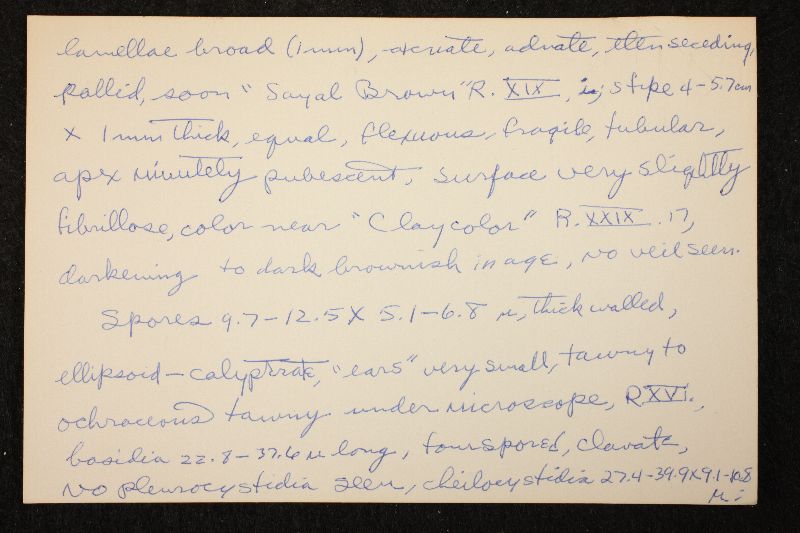 lamellae broad (1 mm), arcuate, adnate, then seceding,
pallid, soon "Sayal Brown" R. XIX, stipe 4-5.7 cm
X 1 mm thick, equal, flexuous, fragile, tubular,
apex minutely pubescent, surface very slightly
fibrillose, color near "Clay color" R. XXIX. 17,
darkening to dark brownish in age, no veil seen.
Spores 9.7-12.5 X 5.1-6.8 μ, thick walled,
ellipsoid-calyptrate, "ears" very small, tawny to
ochraceous tawny under microscope, R XVI.,
basidia 22.8-37.6 μ long, four spored, clavate,
No pleurocystidia seen, cheilocystidia 27.4-39.9 X 9.1-10.8
μ;